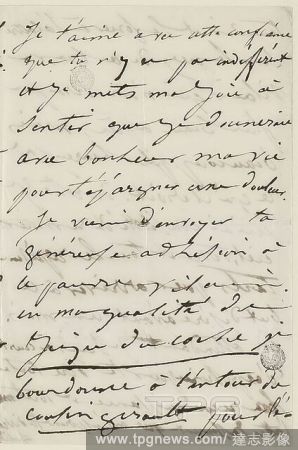 Je t'aime avec cette confiance
que tu n'y es pas indifférent
et je mets ma joie à
sentir que je donnerais
avec bonheur ma vie
pour t'épargner une douleur.
Je viens d'envoyer ta
généreuse adhésion à
ce pauvre
en ma qualité de
du coche je
bourdonne à l'entour de
cousin pour
EPS
www.tpgnews.com/ 達志影像